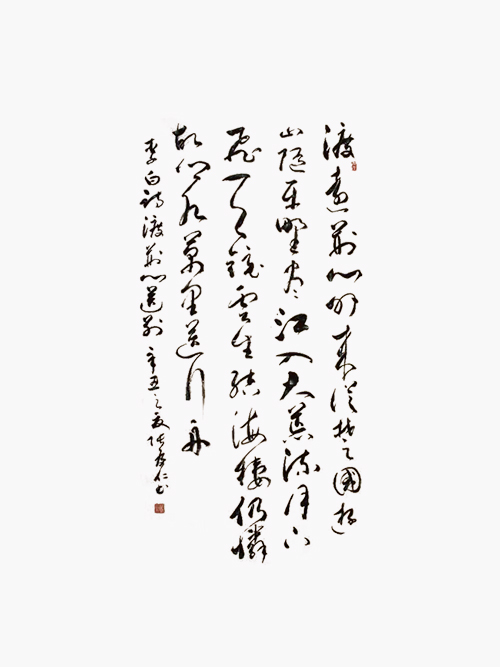 渡遠荆门外来從楚國遊
山隨平野尽江入大荒流月下
飛天鏡雲生結海樓仍憐
故乡水萬里送行舟
李白詩渡荆门送别 辛丑之夏 仁书